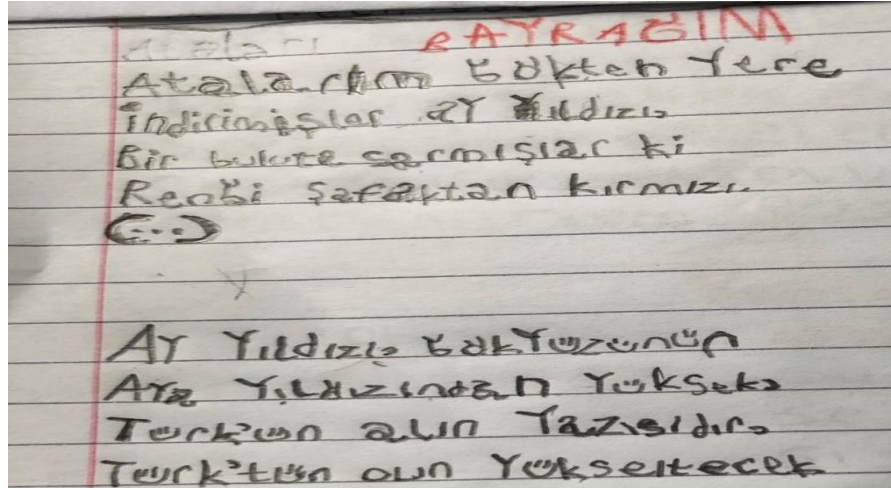 BAYRAĞIM
Atalarım gökten yere
İndirimişler ay yıldızı,
Bir buluta sarmışlar ki
Rengi şafaktan kırmızı.
(...)
Ay Yıldızlı gökyüzünün
Aya Yılduzından Yüksek,
Türk'ün alın Yazısıdır,
Türk'tün oun Yükseltecek